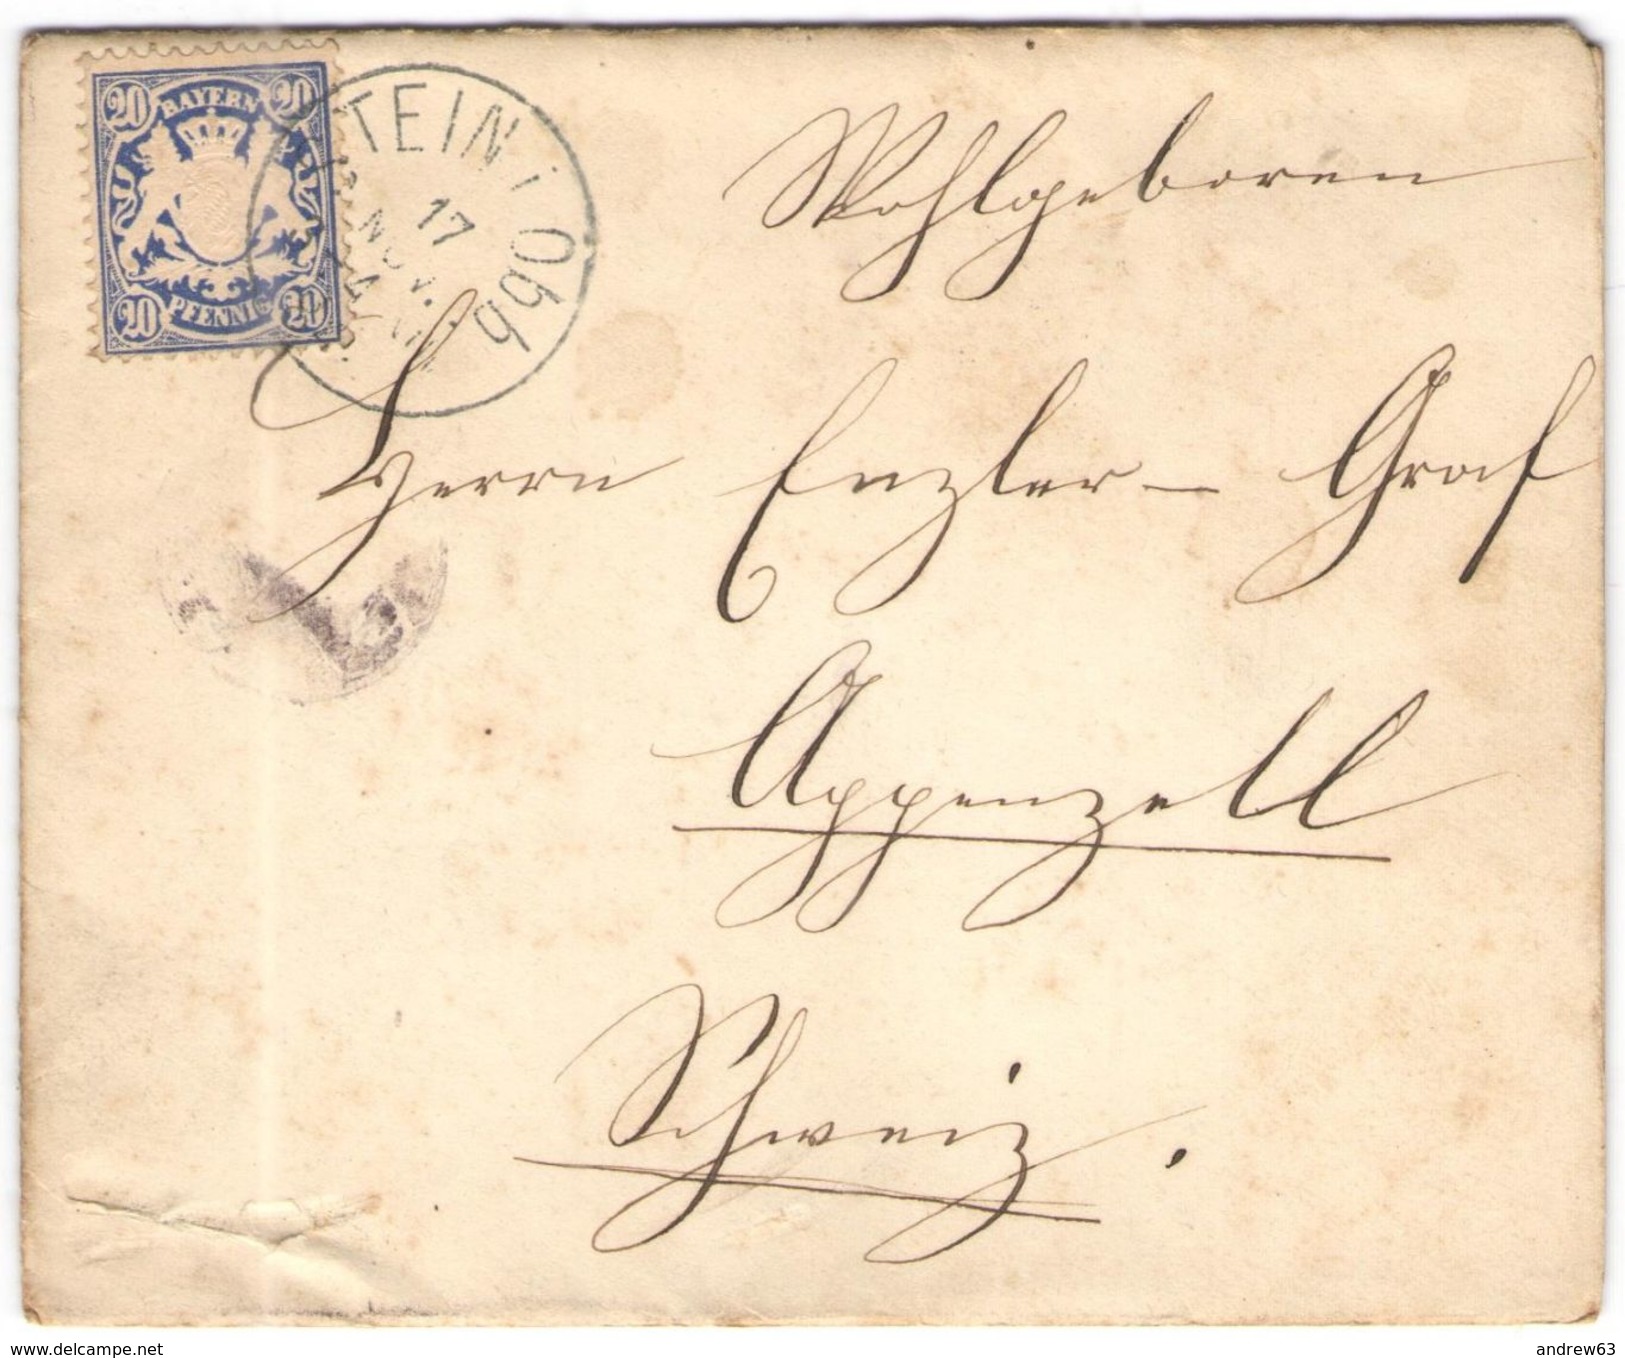 20 BAYERN 20
20 PFENNIG 20
TEIN i Obb
17
NOV.
Wohlgeboren
Herrn Enzler-Graf
Appenzell
Schweiz.
www.delcampe.net
andrew63